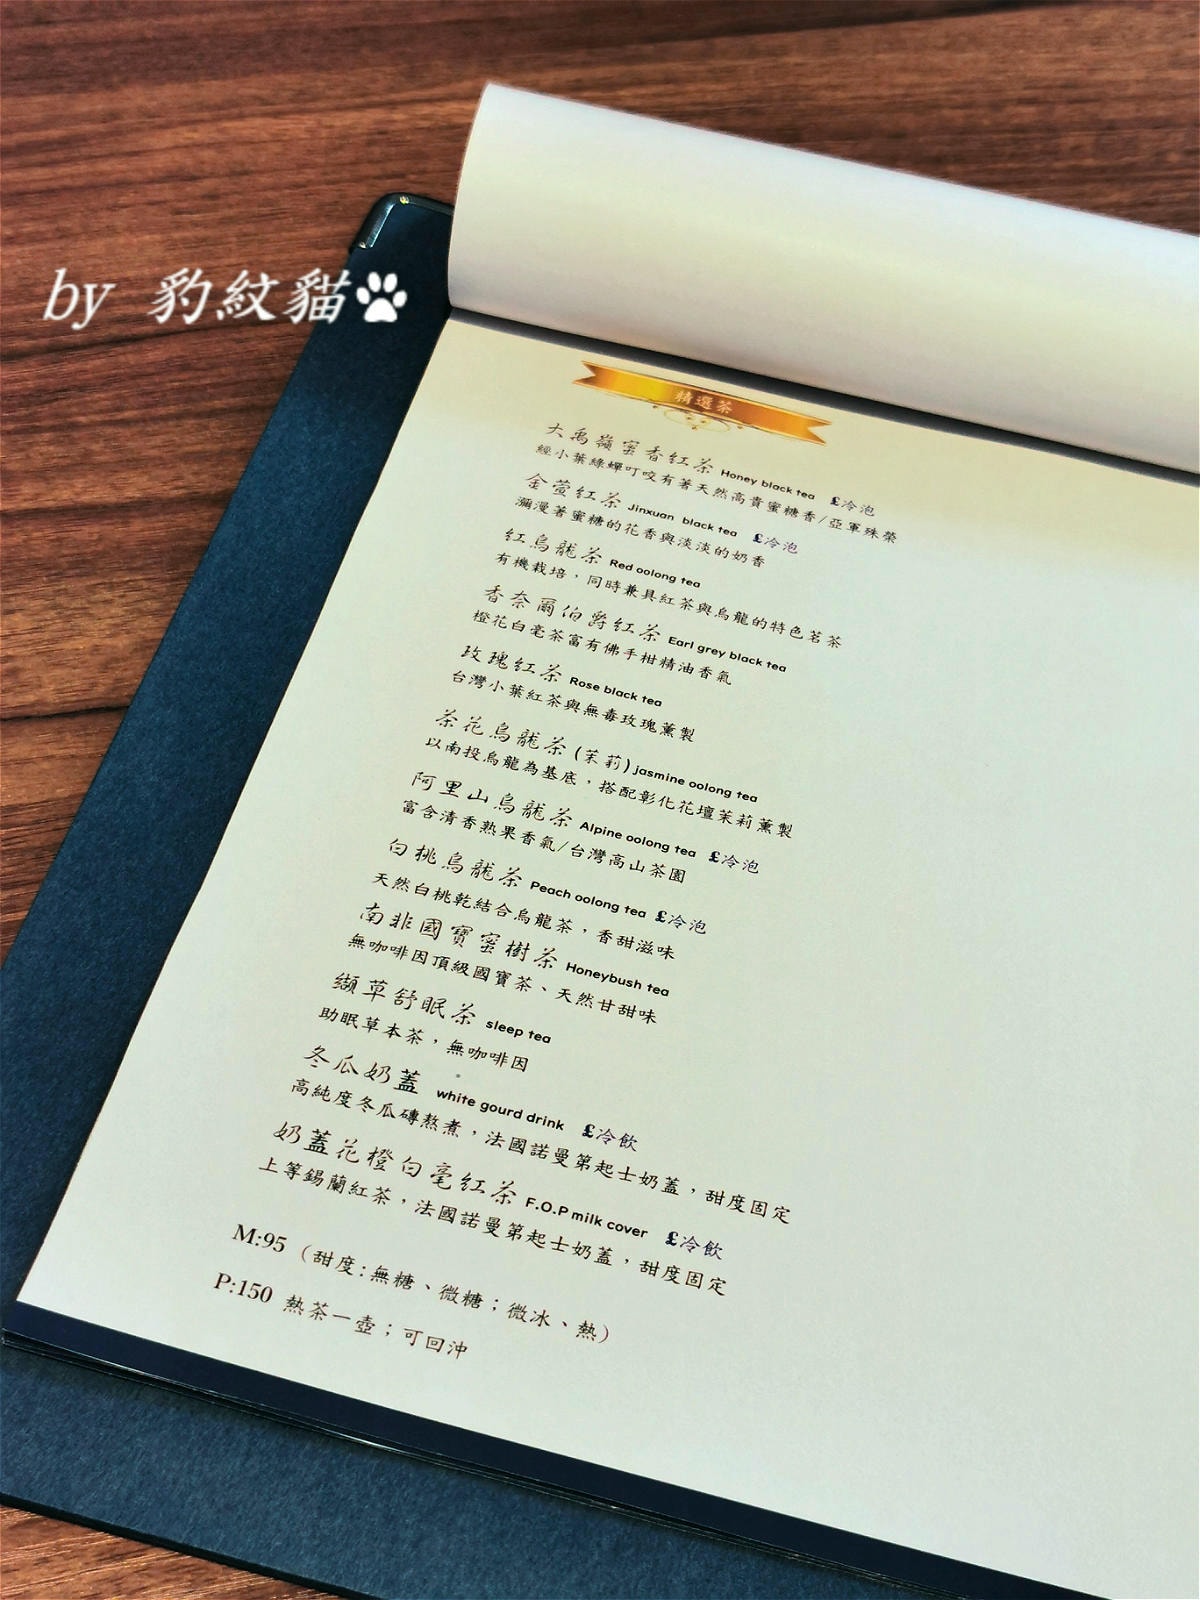 by 豹紋貓
精選茶
大禹嶺蜜香紅茶 Honey black tea £冷泡
經小葉綠蟬叮咬有著天然高貴蜜糖香/亞軍殊榮
金萱紅茶 Jinxuan black tea £冷泡
瀰漫著蜜糖的花香與淡淡的奶香
紅烏龍茶 Red oolong tea
有機栽培，同時兼具紅茶與烏龍的特色茗茶
香奈爾伯爵紅茶 Earl grey black tea
橙花白毫茶富有佛手柑精油香氣
玫瑰紅茶 Rose black tea
台灣小葉紅茶與無毒玫瑰薰製
茶花烏龍茶(茉莉)jasmine oolong tea
以南投烏龍為基底，搭配彰化花壇茉莉薰製
阿里山烏龍茶 Alpine oolong tea £冷泡
富含清香熟果香氣/台灣高山茶園
白桃烏龍茶 Peach oolong tea £冷泡
天然白桃乾結合烏龍茶，香甜滋味
南非國寶蜜樹茶 Honeybush tea
無咖啡因頂級國寶茶、天然甘甜味
纈草舒眠茶 sleep tea
助眠草本茶，無咖啡因
冬瓜奶蓋 white gourd drink £冷飲
高純度冬瓜磚熬煮，法國諾曼第起士奶蓋，甜度固定
奶蓋花橙白毫紅茶 F.O.P milk cover £冷飲
上等錫蘭紅茶，法國諾曼第起士奶蓋，甜度固定
M:95 (甜度:無糖、微糖；微冰、熱)
P:150 熱茶一壺；可回沖